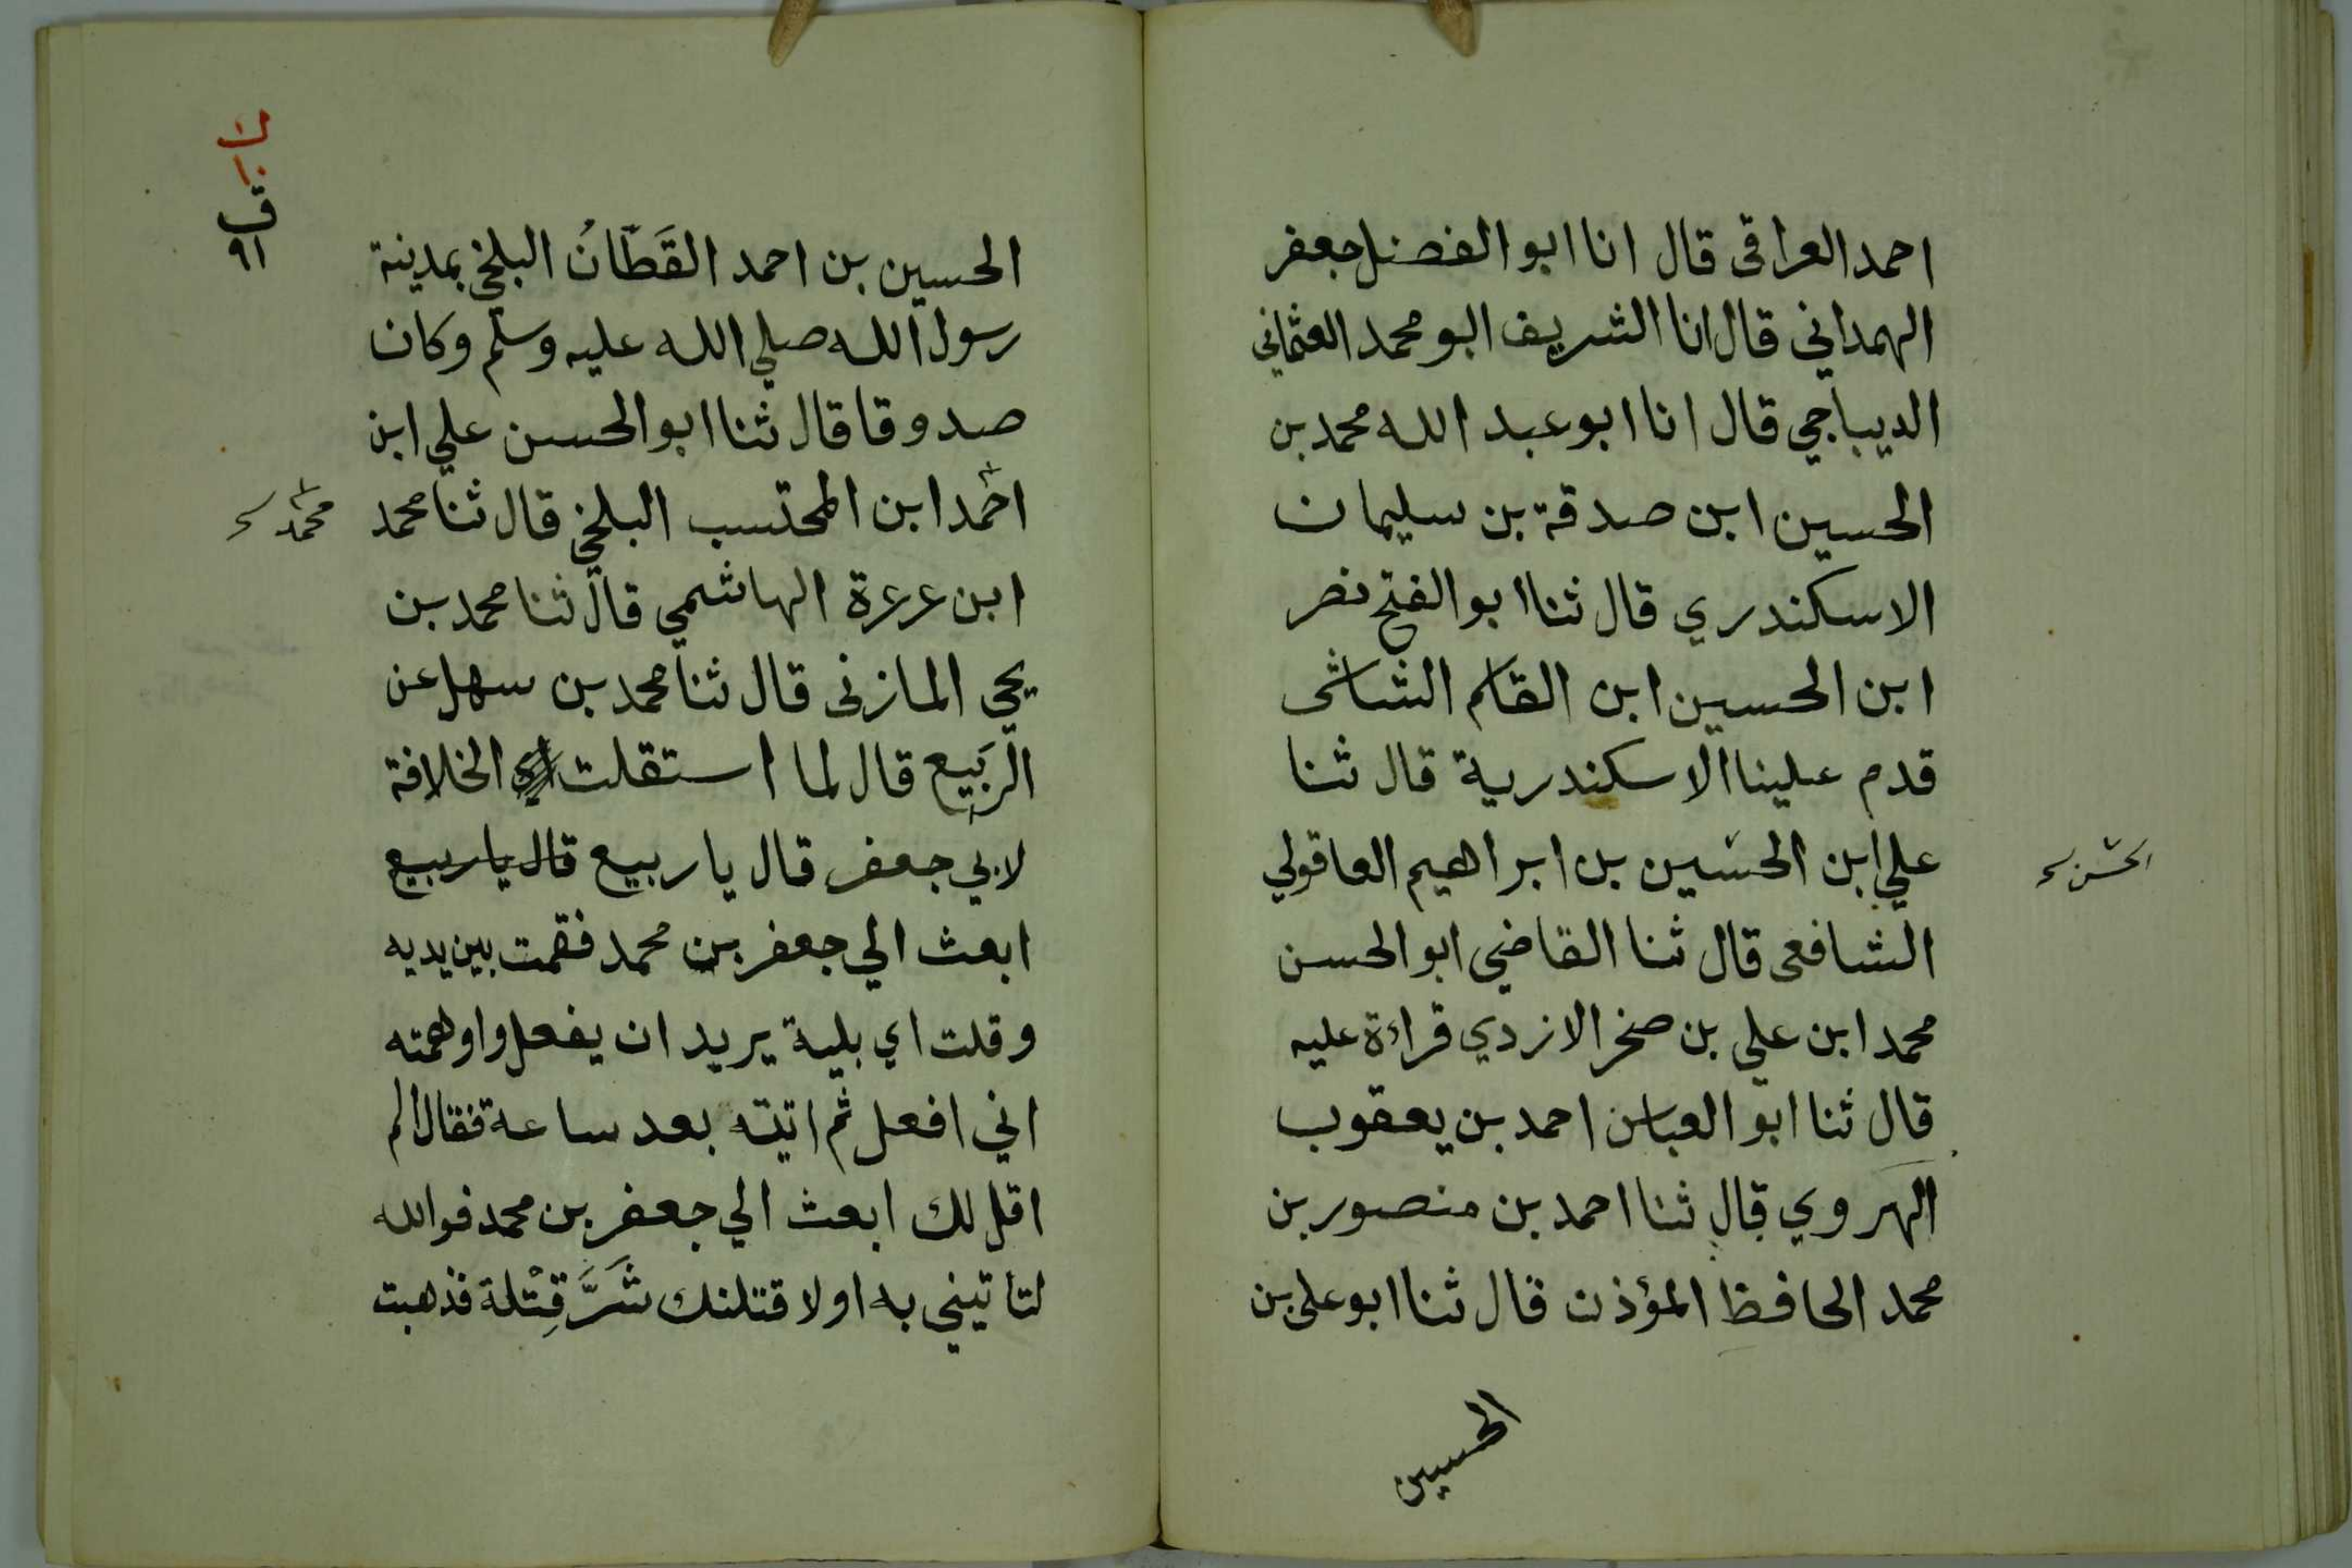 احمد العراقى قال انا ابو الفضل جعفر
الهمداني قال انا الشريف ابو محمد العثماني
الديباجي قال انا ابو عبد الله محمد بن
الحسين ابن صدقة بن سليمان
الاسكندري قال ثنا ابو الفتح نصر
ابن الحسين ابن القاسم الشاشى
قدم علينا الاسكندرية قال ثنا
علي ابن الحسين بن ابراهيم العاقولي
الحسن
الشافعى قال ثنا القاضي ابو الحسن
محمد ابن علي بن صخر الازدي قراءة عليه
قال ثنا ابو العباس احمد بن يعقوب
الهروي قال ثنا احمد بن منصور بن
محمد الحافظ المؤذن قال ثنا ابو على بن
الحسين
ق
٩١
الحسين بن احمد القَطّانُ البلخي بمدينة
رسول الله صلي الله عليه وسلم وكان
صدوقا قال ثنا ابو الحسن علي ابن
احمد ابن المحتسب البلخي قال ثنا محمد
محمد
ابن عرعرة الهاشمي قال ثنا محمد بن
يحي المازنى قال ثنا محمد بن سهل عن
الرَبيع قال لما استقلت الخلافة
لابي جعفر قال يا ربيع قال يا ربيع
ابعث الي جعفر بن محمد فقمت بين يديه
وقلت اي بلية يريد ان يفعل واوهمته
اني افعل ثم اتيته بعد ساعة فقال الم
اقل لك ابعث الي جعفر بن محمد فوالله
لتاتيني به او لاقتلنك شَرَّ قِتْلة فذهبت